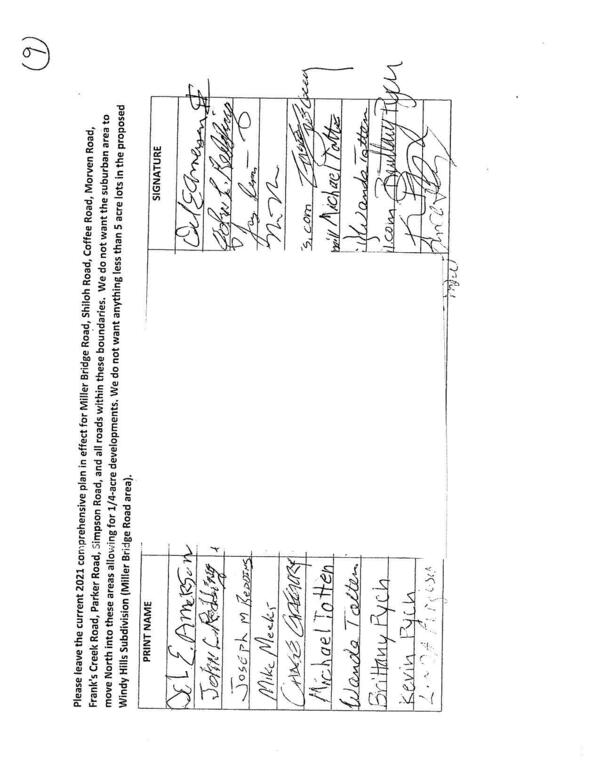 (9)
Please leave the current 2021 comprehensive plan in effect for Miller Bridge Road, Shiloh Road, Coffee Road, Morven Road,
Frank's Creek Road, Parker Road, Simpson Road, and all roads within these boundaries. We do not want the suburban area to
move North into these areas allowing for 1/4-acre developments. We do not want anything less than 5 acre lots in the proposed
Windy Hills Subdivision (Miller Bridge Road area).
PRINT NAME SIGNATURE
Del E. Amerson
John L. Redding
Joseph M Redding
Mike Meeks
s.com
Michael Totten Michael Totten
Wanda Totten Wanda Totten
Brittany Rych .com Brittany Rych
Kevin Rych